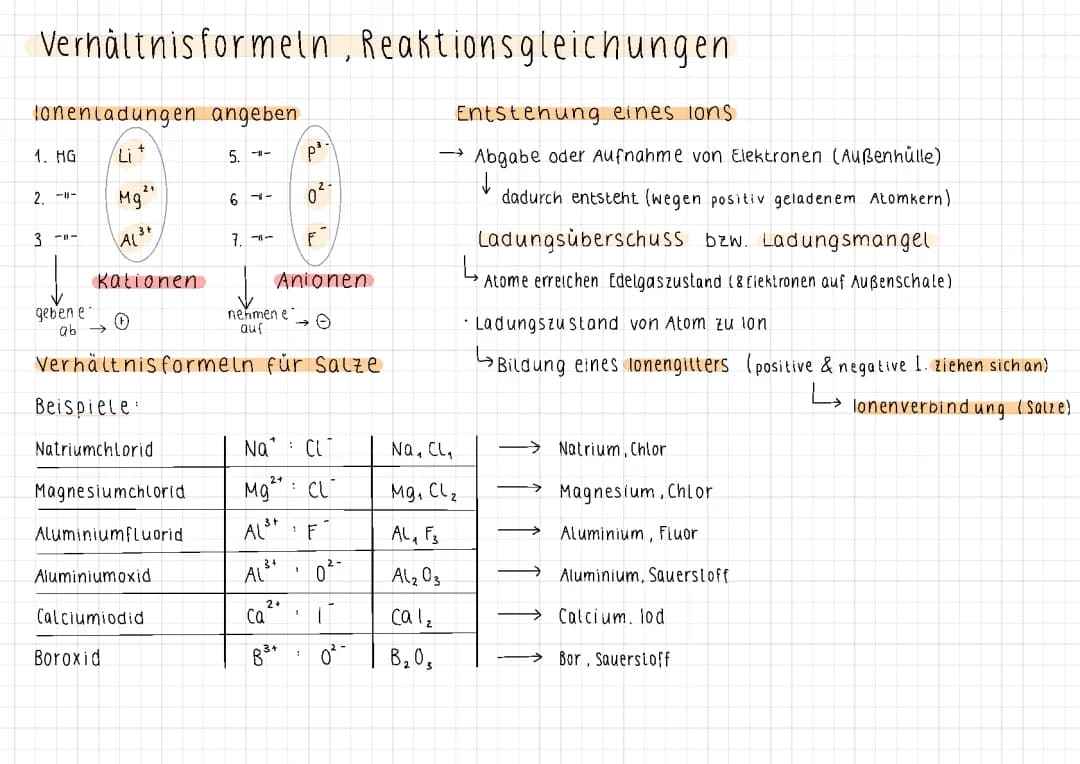 Verhältnisformeln, Reaktionsgleichungen
Ionenladungen angeben
1. HG Li⁺ 5. -"- P³⁻
2. -"- Mg²⁺ 6 -"- O²⁻
3 -"- Al³⁺ 7. -"- F⁻
Kationen Anionen
geben e⁻ ab → ⊕
nehmen e⁻ auf → ⊖
Entstehung eines Ions
→ Abgabe oder Aufnahme von Elektronen (Außenhülle)
↓ dadurch entsteht (wegen positiv geladenem Atomkern)
Ladungsüberschuss bzw. Ladungsmangel
↳ Atome erreichen Edelgaszustand (8 Elektronen auf Außenschale)
· Ladungszustand von Atom zu Ion
↳ Bildung eines Ionengitters (positive & negative I. ziehen sich an)
↳ Ionenverbindung (Salze)
Verhältnisformeln für Salze
Beispiele:
Natriumchlorid Na⁺ : Cl⁻ Na₁ Cl₁ → Natrium, Chlor
Magnesiumchlorid Mg²⁺ : Cl⁻ Mg₁ Cl₂ → Magnesium, Chlor
Aluminiumfluorid Al³⁺ : F⁻ Al₁ F₃ → Aluminium, Fluor
Aluminiumoxid Al³⁺ : O²⁻ Al₂ O₃ → Aluminium, Sauerstoff
Calciumiodid Ca²⁺ : I⁻ Ca I₂ → Calcium. Iod
Boroxid B³⁺ : O²⁻ B₂ O₃ → Bor, Sauerstoff